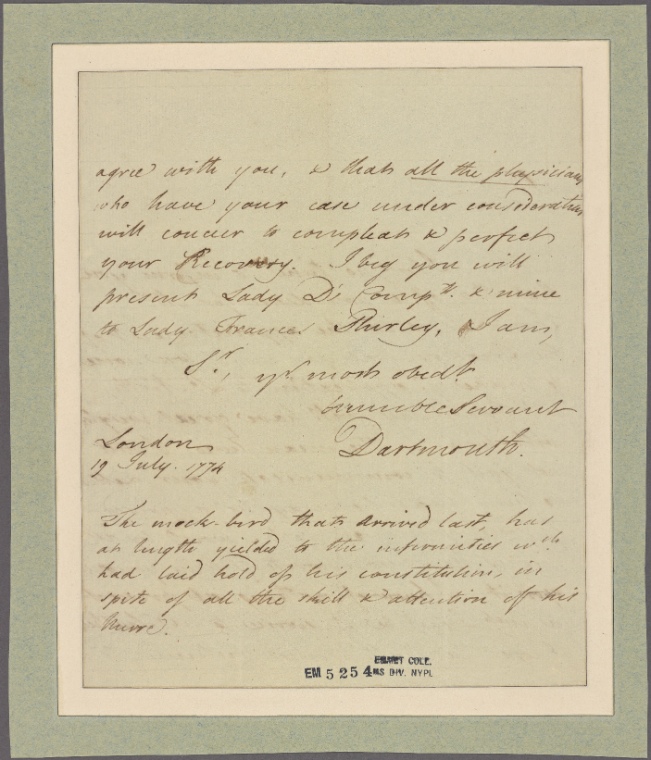 agree with you, & that all the physicians
who have your case under consideration
will concur to compleat & perfect
your Recovery I beg you will
present Lady D's Compts. & mine
to Lady Frances Shirley, I am,
Sr., yr. most obedt.
humble Servant
Dartmouth.
London
19 July. 1774
The mock-bird that arrived last, has
at length yielded to the infirmities wch.
had laid hold of his constitution, in
spite of all the skill & attention of his
Nurse.
EM 5254
EMMET COLL.
MS DIV. NYPL